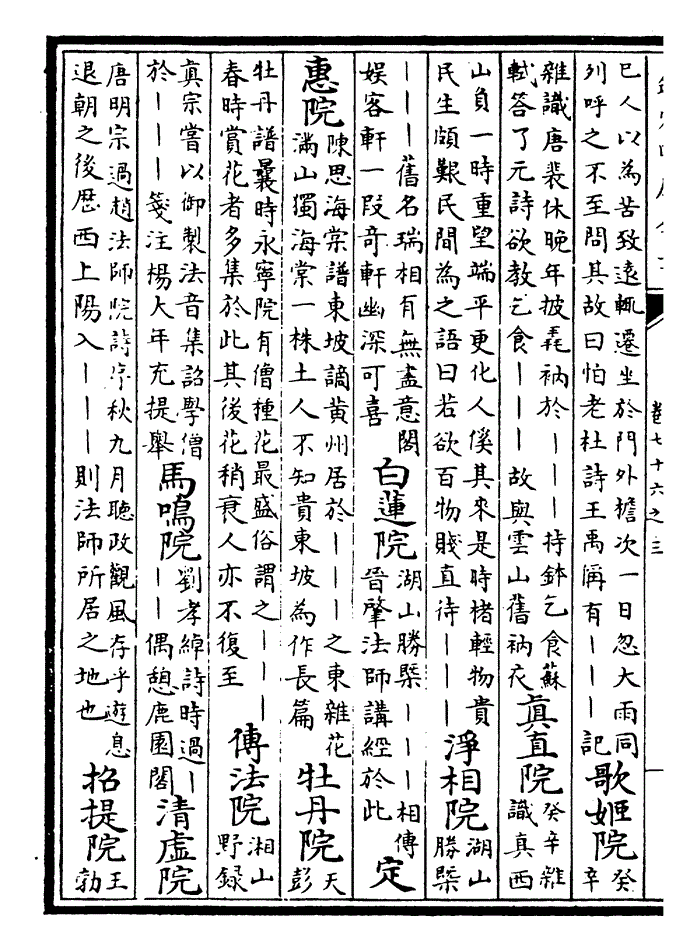 卷七十六之三
已人以為苦致遠輒遷坐於門外檐次一日忽大雨同
列呼之不至問其故曰怕老杜詩王禹偁有｜｜｜記
歌姬院
癸
辛
雜識唐裴休晚年披毳衲於｜｜｜持鉢乞食蘇
軾答了元詩欲教乞食｜｜｜故與雲山舊衲衣
真直院
癸辛雜
識真西
山負一時重望端平更化人傒其來是時楮輕物貴
民生頗艱民間為之語曰若欲百物賤直待｜｜｜
淨相院
湖山
勝槩
｜｜｜舊名瑞相有無盡意閣
娛客軒一段奇軒幽深可喜
白蓮院
湖山勝槩｜｜｜相傳
晉肇法師講經於此
定
惠院
陳思海棠譜東坡謫黃州居於｜｜｜之東雜花
滿山獨海棠一株土人不知貴東坡為作長篇
牡丹院
天
彭
牡丹譜曩時永寧院有僧種花最盛俗謂之｜｜｜
春時賞花者多集於此其後花稍衰人亦不復至
傳法院
湘山
野録
真宗嘗以御製法音集詔學僧
於｜｜｜箋注楊大年充提舉
馬鳴院
劉孝綽詩時過｜
｜｜偶憩鹿園閣
清虛院
唐明宗過趙法師院詩序秋九月聽政觀風存乎遊息
退朝之後歷西上陽入｜｜｜則法師所居之地也
招提院
王
勃